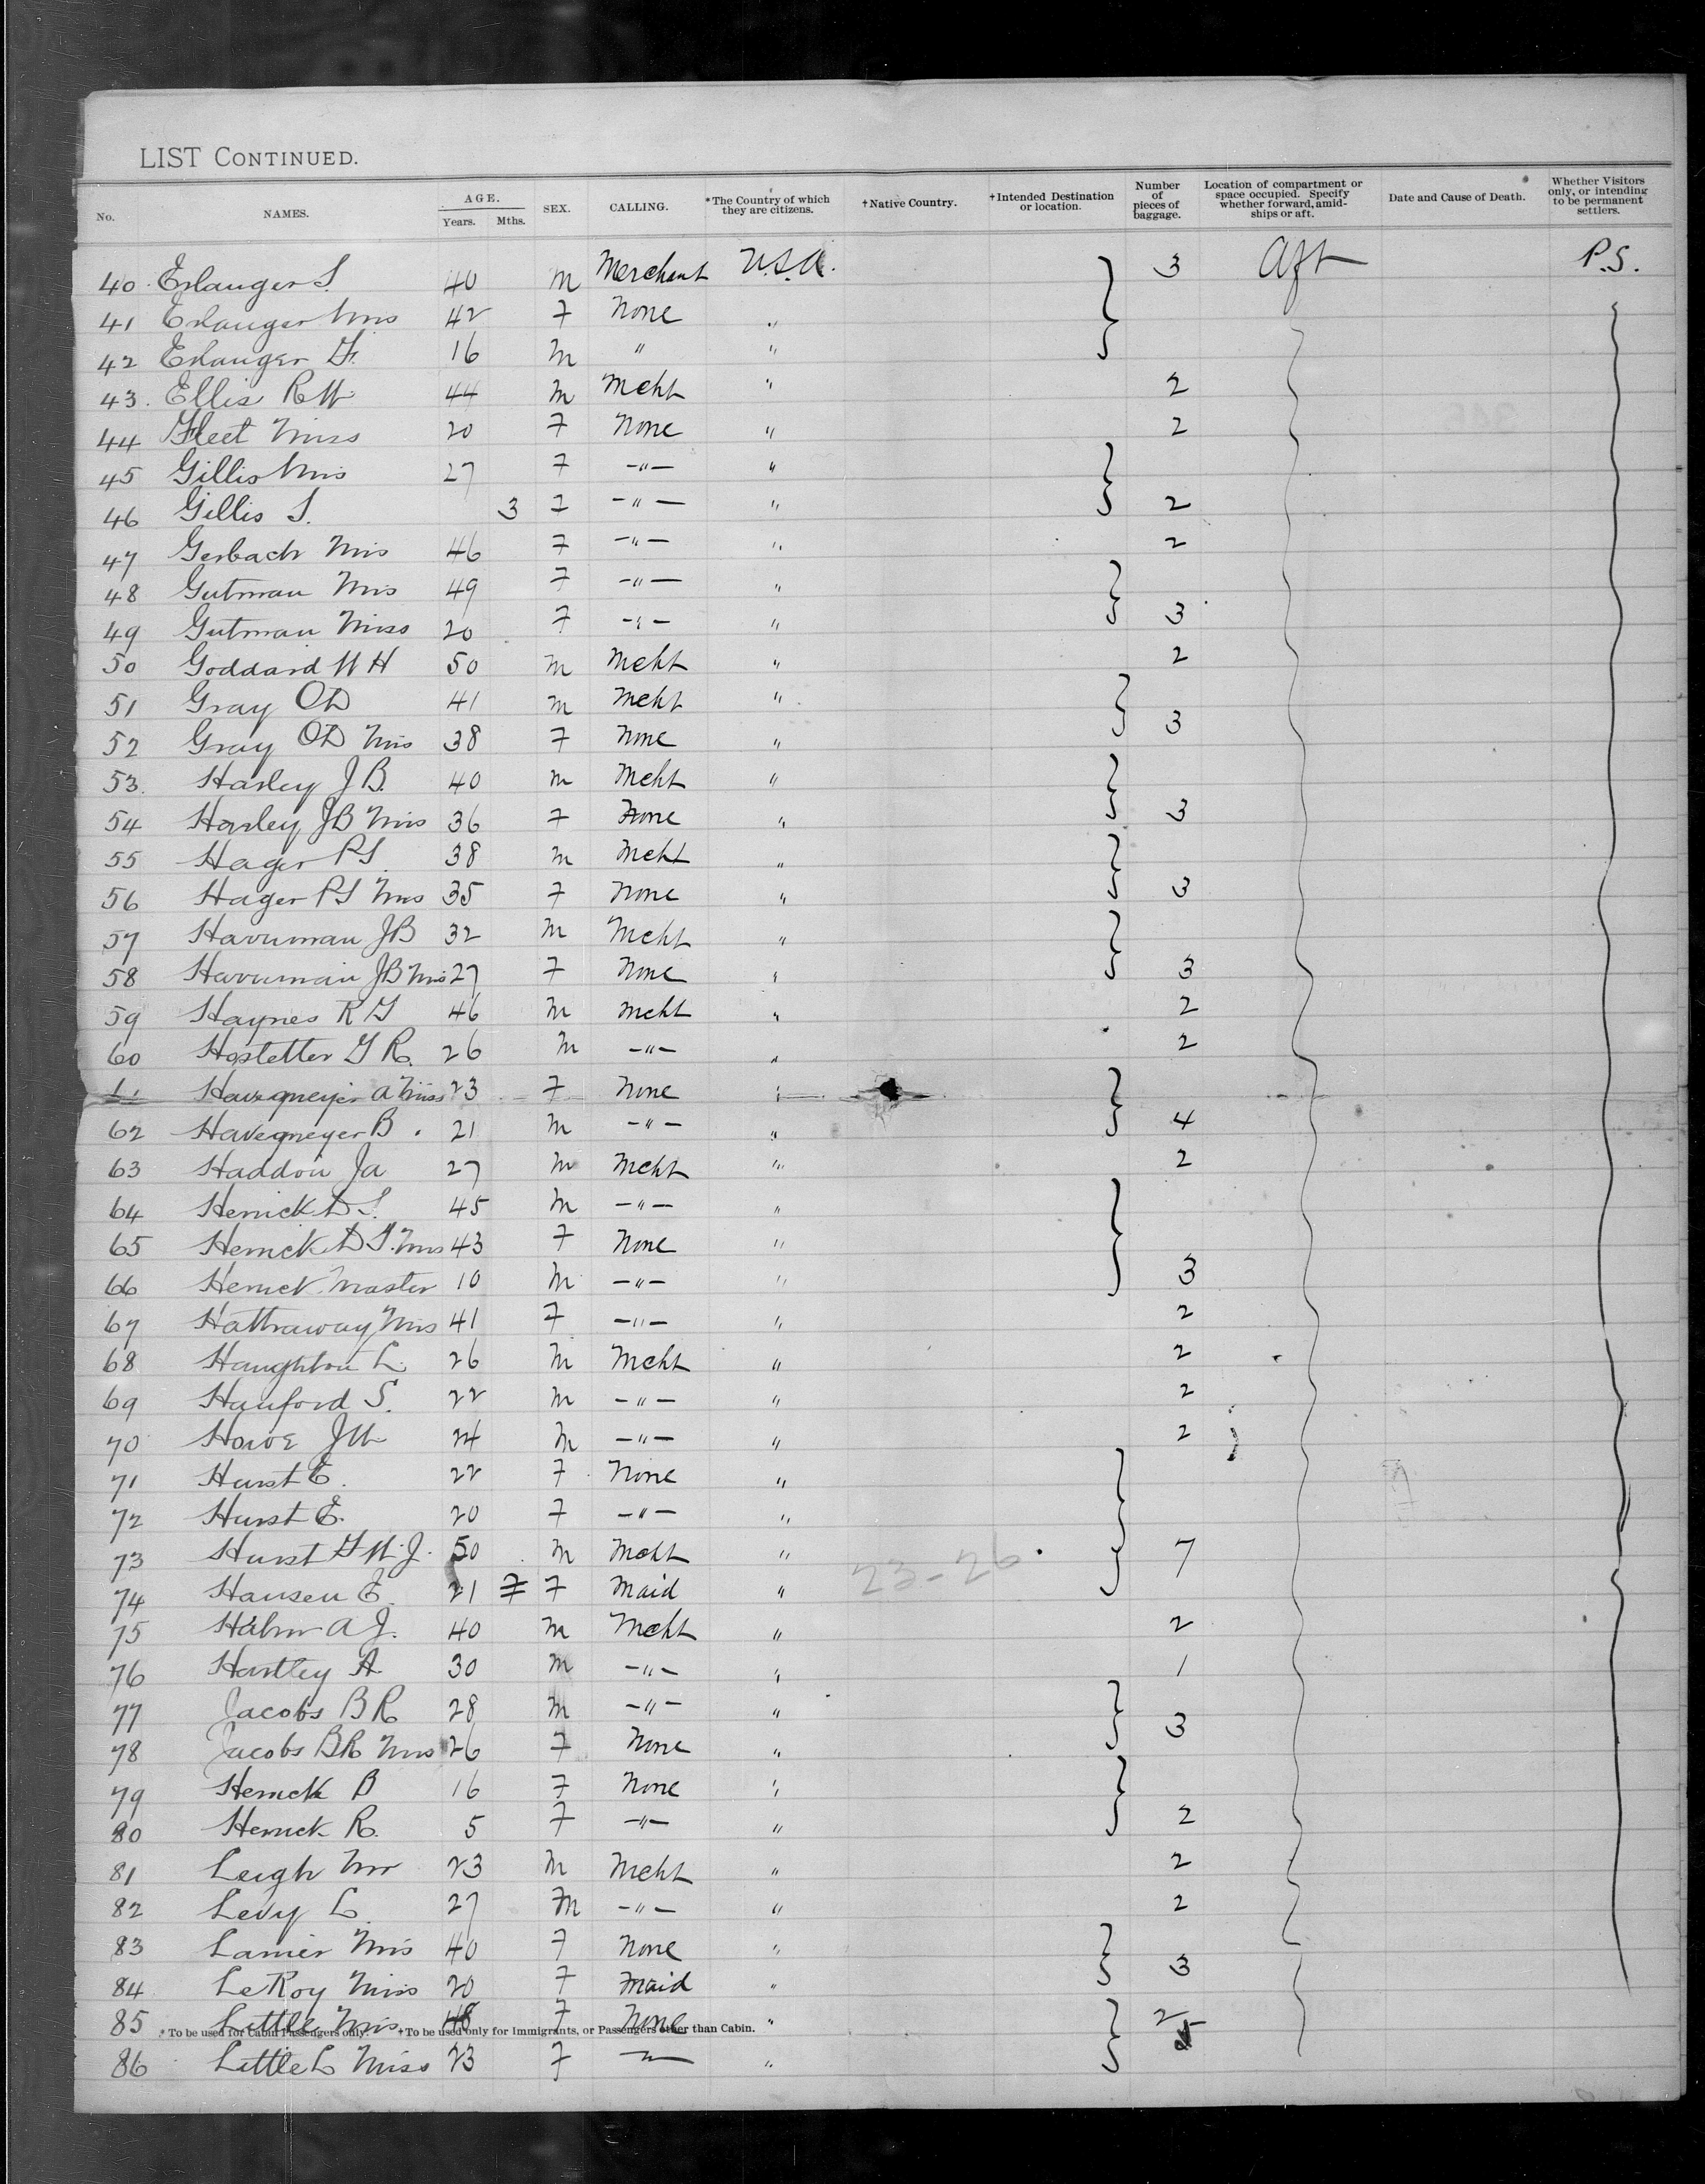 LIST CONTINUED.
No. NAMES. AGE. Years. Mths. SEX. CALLING. *The Country of which they are citizens. †Native Country. †Intended Destination or location. Number of pieces of baggage. Location of compartment or space occupied. Specify whether forward, amidships or aft. Date and Cause of Death. Whether Visitors only, or intending to be permanent settlers.
40 Erlanger S. 40 m Merchant U.S.A. 3 Aft P.S.
41 Erlanger Mrs 42 F None "
42 Erlanger G. 16 m " "
43. Ellis R W 44 m Mcht " 2
44 Fleet Miss 20 F None " 2
45 Gillis Mrs 27 F -"- "
46 Gillis S. 3 F -"- " 2
47 Gerbach Mrs 46 F -"- " 2
48 Gutman Mrs 49 F -"- "
49 Gutman Miss 20 F -"- " 3
50 Goddard W H 50 m Mcht " 2
51 Gray O D 41 m Mcht "
52 Gray O D Mrs 38 F None " 3
53. Harley J B. 40 m Mcht "
54 Harley J B Mrs 36 F None " 3
55 Hager P S 38 m Mcht "
56 Hager P S Mrs 35 F None " 3
57 Harriman J B 32 m Mcht "
58 Harriman J B Mrs 27 F None " 3
59 Haynes R G 46 m Mcht " 2
60 Hostetter G R. 26 m -"- " 2
61 Havemeyer A Miss 23 F None "
62 Havemeyer B. 21 m -"- " 4
63 Haddon Ja 27 m Mcht " 2
64 Herrick D S. 45 m -"- "
65 Herrick D S. Mrs 43 F None "
66 Herrick Master 10 m -"- " 3
67 Hathaway Mrs 41 F -"- " 2
68 Haughton L. 26 m Mcht " 2
69 Hanford S. 22 m -"- " 2
70 Howe J W 24 m -"- " 2
71 Hurst E. 22 F None "
72 Hurst E. 20 F -"- "
73 Hurst G W. J. 50 m Mcht " 7
74 Hansen E. 21 F F Maid " 23-26
75 Hahn A J. 40 m Mcht " 2
76 Hartley A. 30 m -"- " 1
77 Jacobs B R 28 m -"- "
78 Jacobs B R Mrs 26 F None " 3
79 Herrick B 16 F None "
80 Herrick R. 5 F -"- " 2
81 Leigh Mr 23 m Mcht " 2
82 Levy L. 27 m -"- " 2
83 Lanier Mrs 40 F None "
84 Le Roy Miss 20 F Maid " 3
85 Little Mrs 48 F None " 2
* To be used for Cabin Passengers only. †To be used only for Immigrants, or Passengers other than Cabin.
86 Little L Miss 23 F -"- "